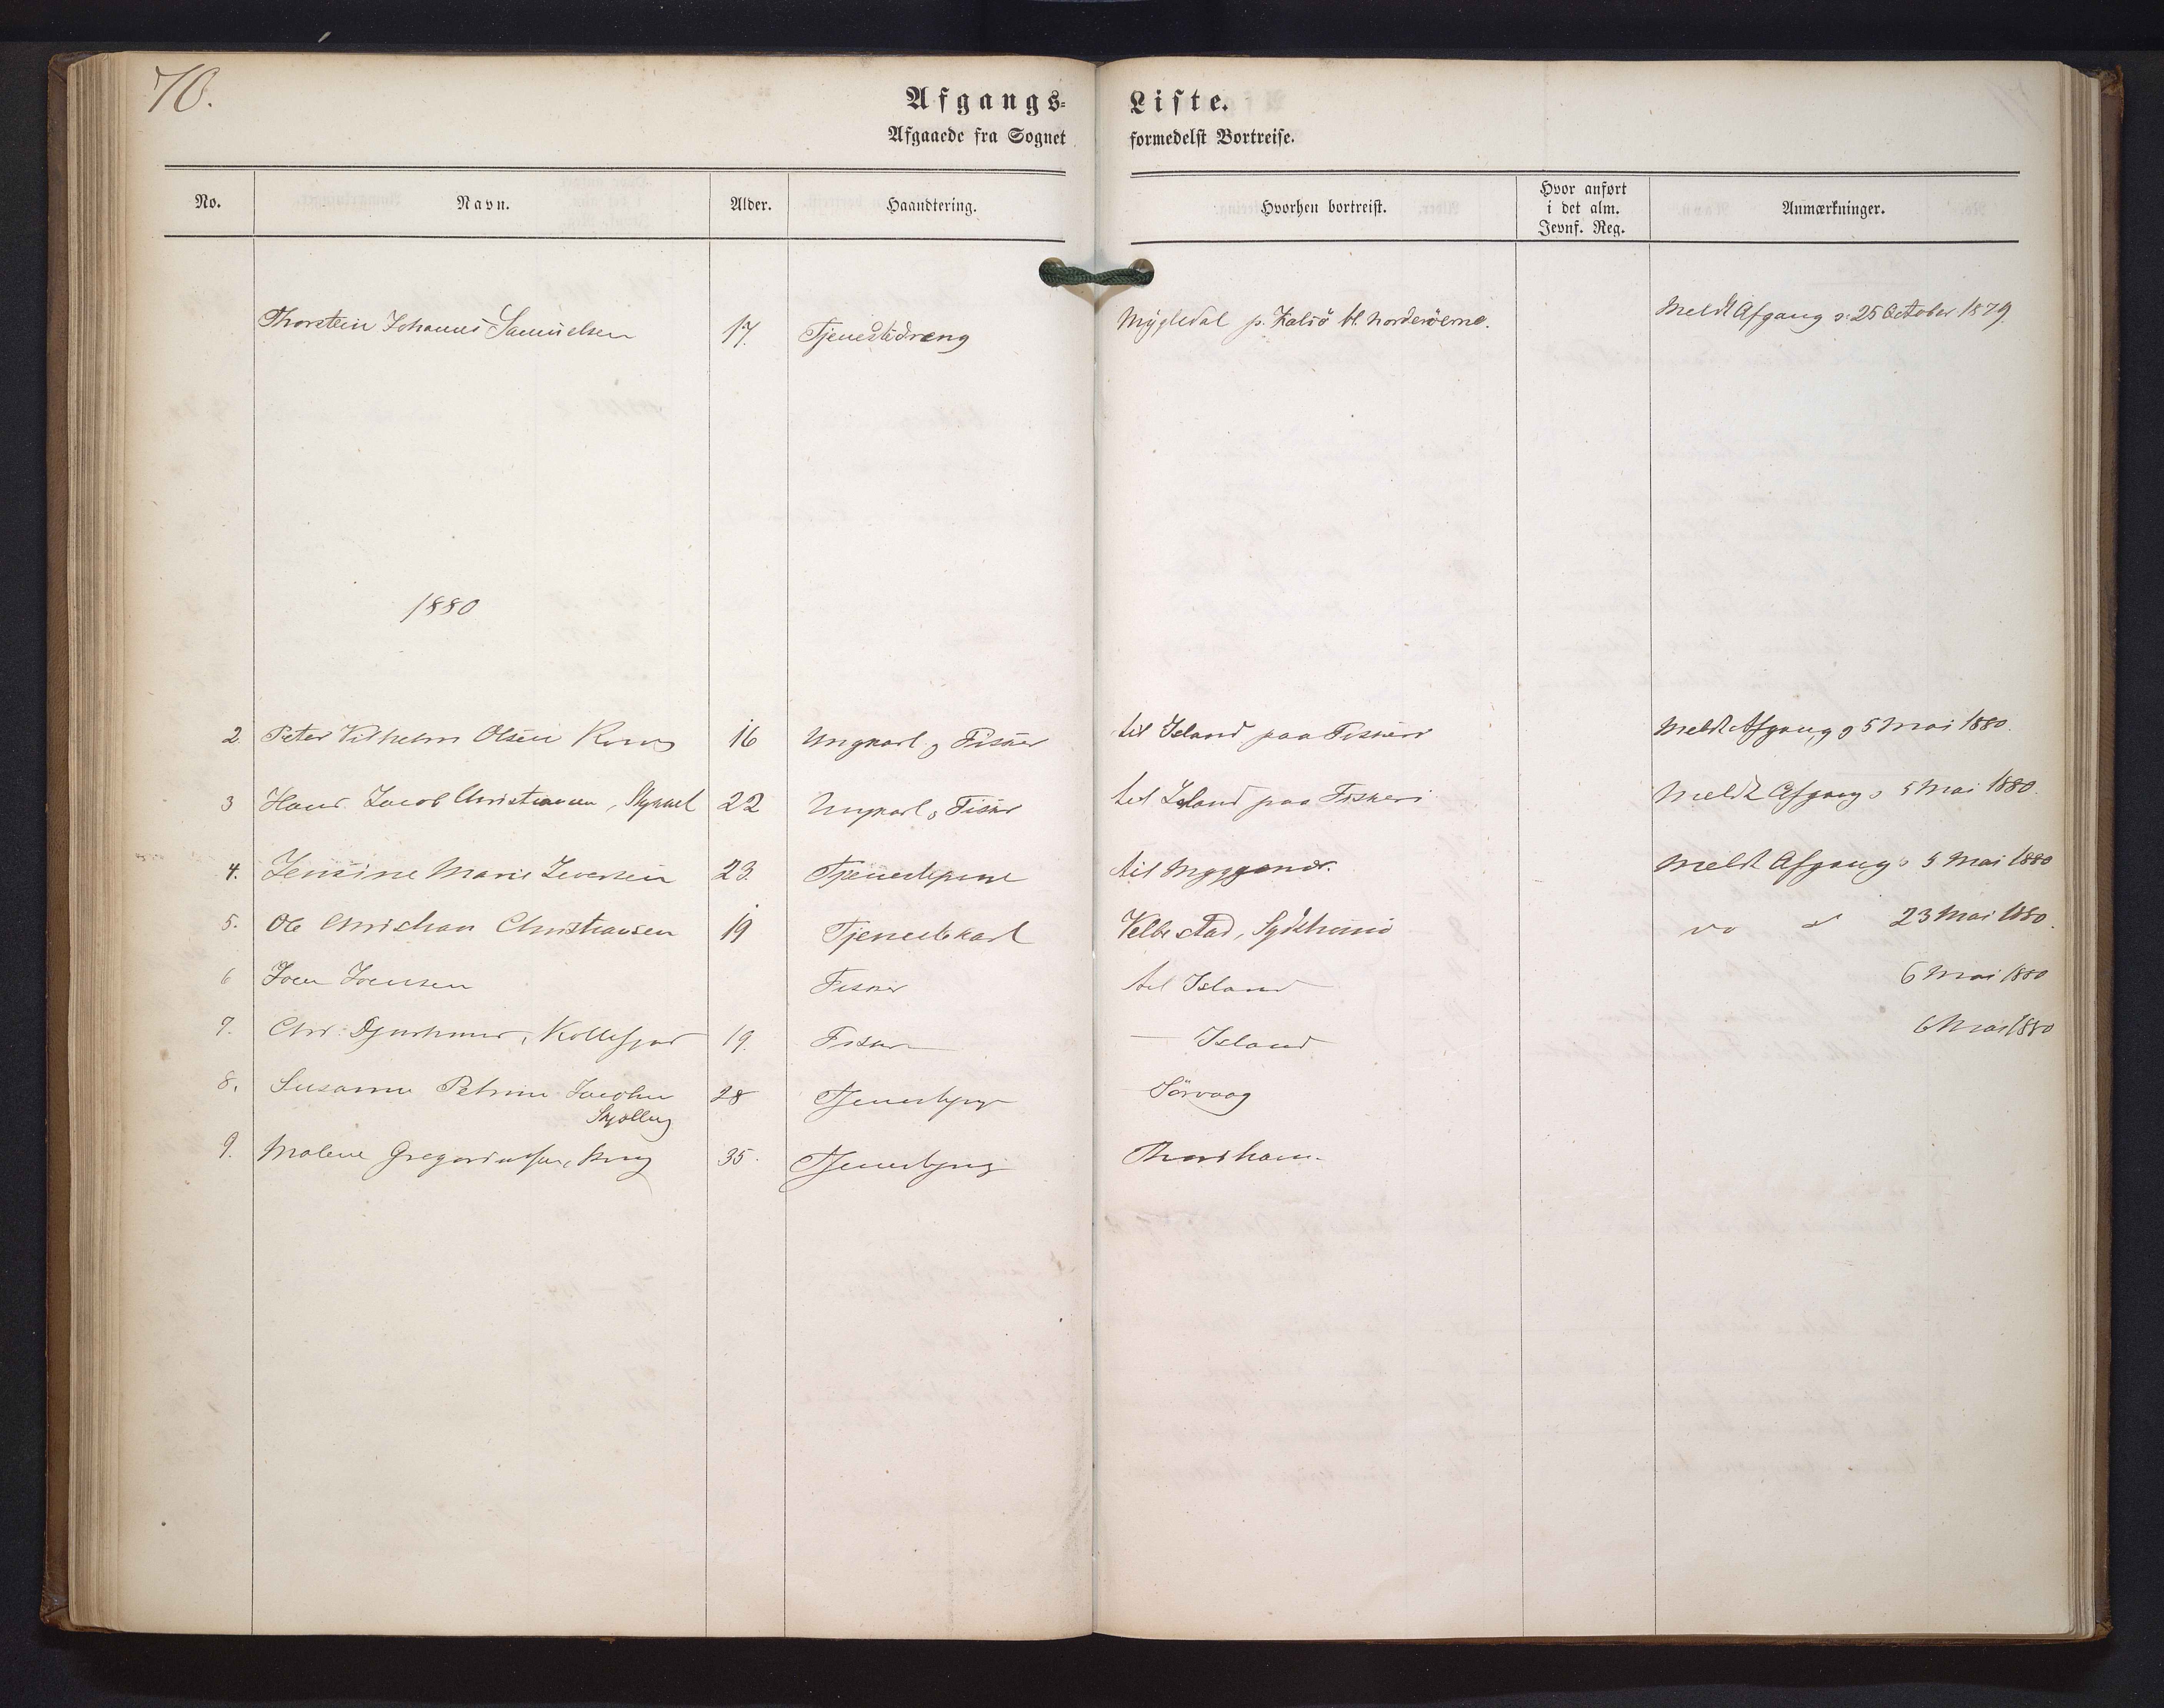 70.
Afgangs-Liste.
Afgaaede fra Sognet formedelst Bortreise.
No. Navn. Alder. Haandtering. Hvorhen bortreist. Hvor anført i det alm. Jevnf. Reg. Anmærkninger.
Thorstein Johannes Samuelsen 17. Tjenestedreng Mygledal p. Kalsö til Norderöerne. Meldt Afgang d: 25 October 1879.
1880
2. Peter Vilhelm Olsen 16 Ungkarl og Fisker til Island paa Fiskeri Meldt Afgang d 5 Mai 1880.
3 Hans Jacob Christiansen, 22 Ungkarl, Fisker til Island paa Fiskeri Meldt Afgang d 5 Mai 1880.
4. Jensine Marie Iversen 23. Tjenestepige til Myggenæs. Meldt Afgang d 5 Mai 1880
5. Ole Christian Christiansen 19 Tjenestekarl Velbestad, 23 Mai 1880.
6 Joen Joensen Fisker til Island 6 Mai 1880
7. Chr: Djurhuus, Kollefjord 19. Fisker — Island 6 Mai 1880
8. Susanne Petrine 28 Tjenestepige Sörvaag
9. Malene 35. Tjenestepige Thorshavn.